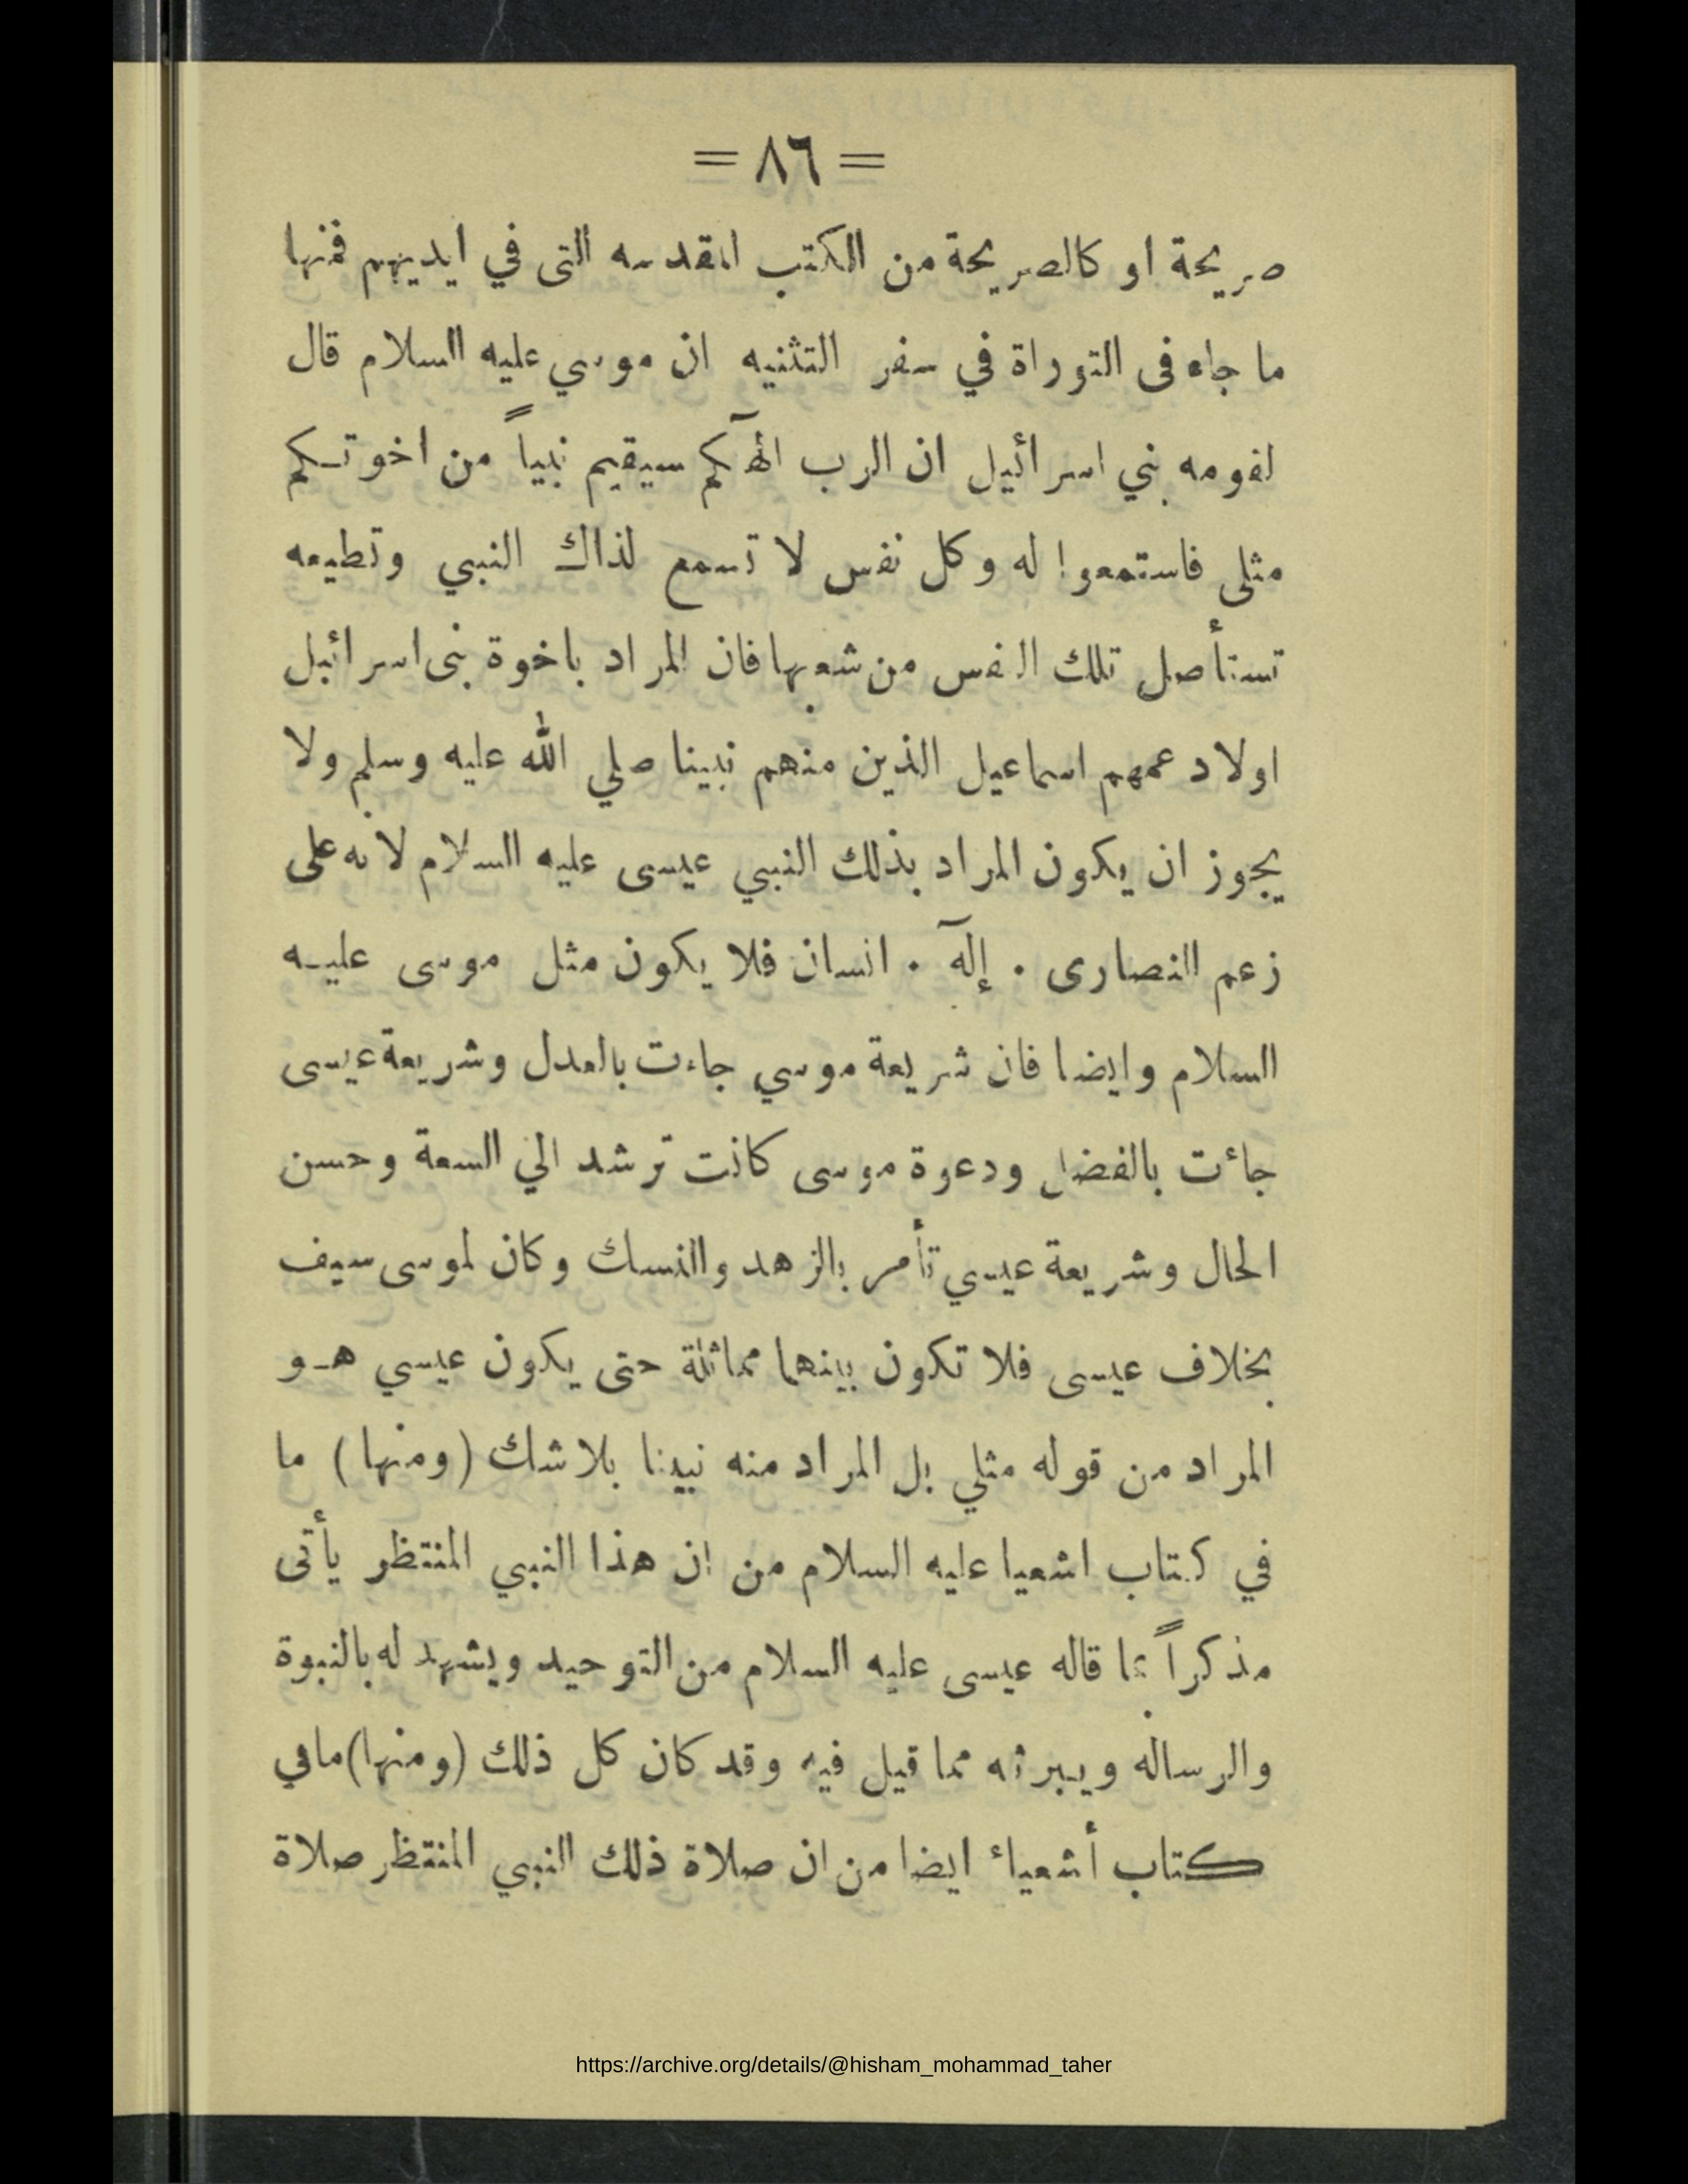 = ٨٦ =
صريحة او كالصريحة من الكتب المقدسه التى في ايديهم فمنها
ما جاء فى التوراة في سفر التثنيه ان موسي عليه السلام قال
لقومه بني اسرائيل ان الرب الهكم سيقيم نبياً من اخوتكم
مثلى فاستمعوا له وكل نفس لا تسمع لذاك النبي وتطيعه
تستأصل تلك النفس من شعبها فان المراد باخوة بنى اسرائيل
اولاد عمهم اسماعيل الذين منهم نبينا صلي الله عليه وسلم ولا
يجوز ان يكون المراد بذلك النبي عيسى عليه السلام لانه على
زعم النصارى . إلهٓ . انسان فلا يكون مثل موسى عليه
السلام وايضا فان شريعة موسي جاءت بالعدل وشريعة عيسى
جائت بالفضل ودعوة موسى كانت ترشد الي السعة وحسن
الحال وشريعة عيسي تأمر بالزهد والنسك وكان لموسى سيف
بخلاف عيسى فلا تكون بينهما مماثلة حتى يكون عيسي هو
المراد من قوله مثلي بل المراد منه نبينا بلا شك (ومنها) ما
في كتاب اشعيا عليه السلام من ان هذا النبي المنتظر يأتى
مذكراً بما قاله عيسى عليه السلام من التوحيد ويشهد له بالنبوة
والرساله ويبرئه مما قيل فيه وقد كان كل ذلك (ومنها) ما في
كتاب أشعياء ايضا من ان صلاة ذلك النبي المنتظر صلاة
https://archive.org/details/@hisham_mohammad_taher